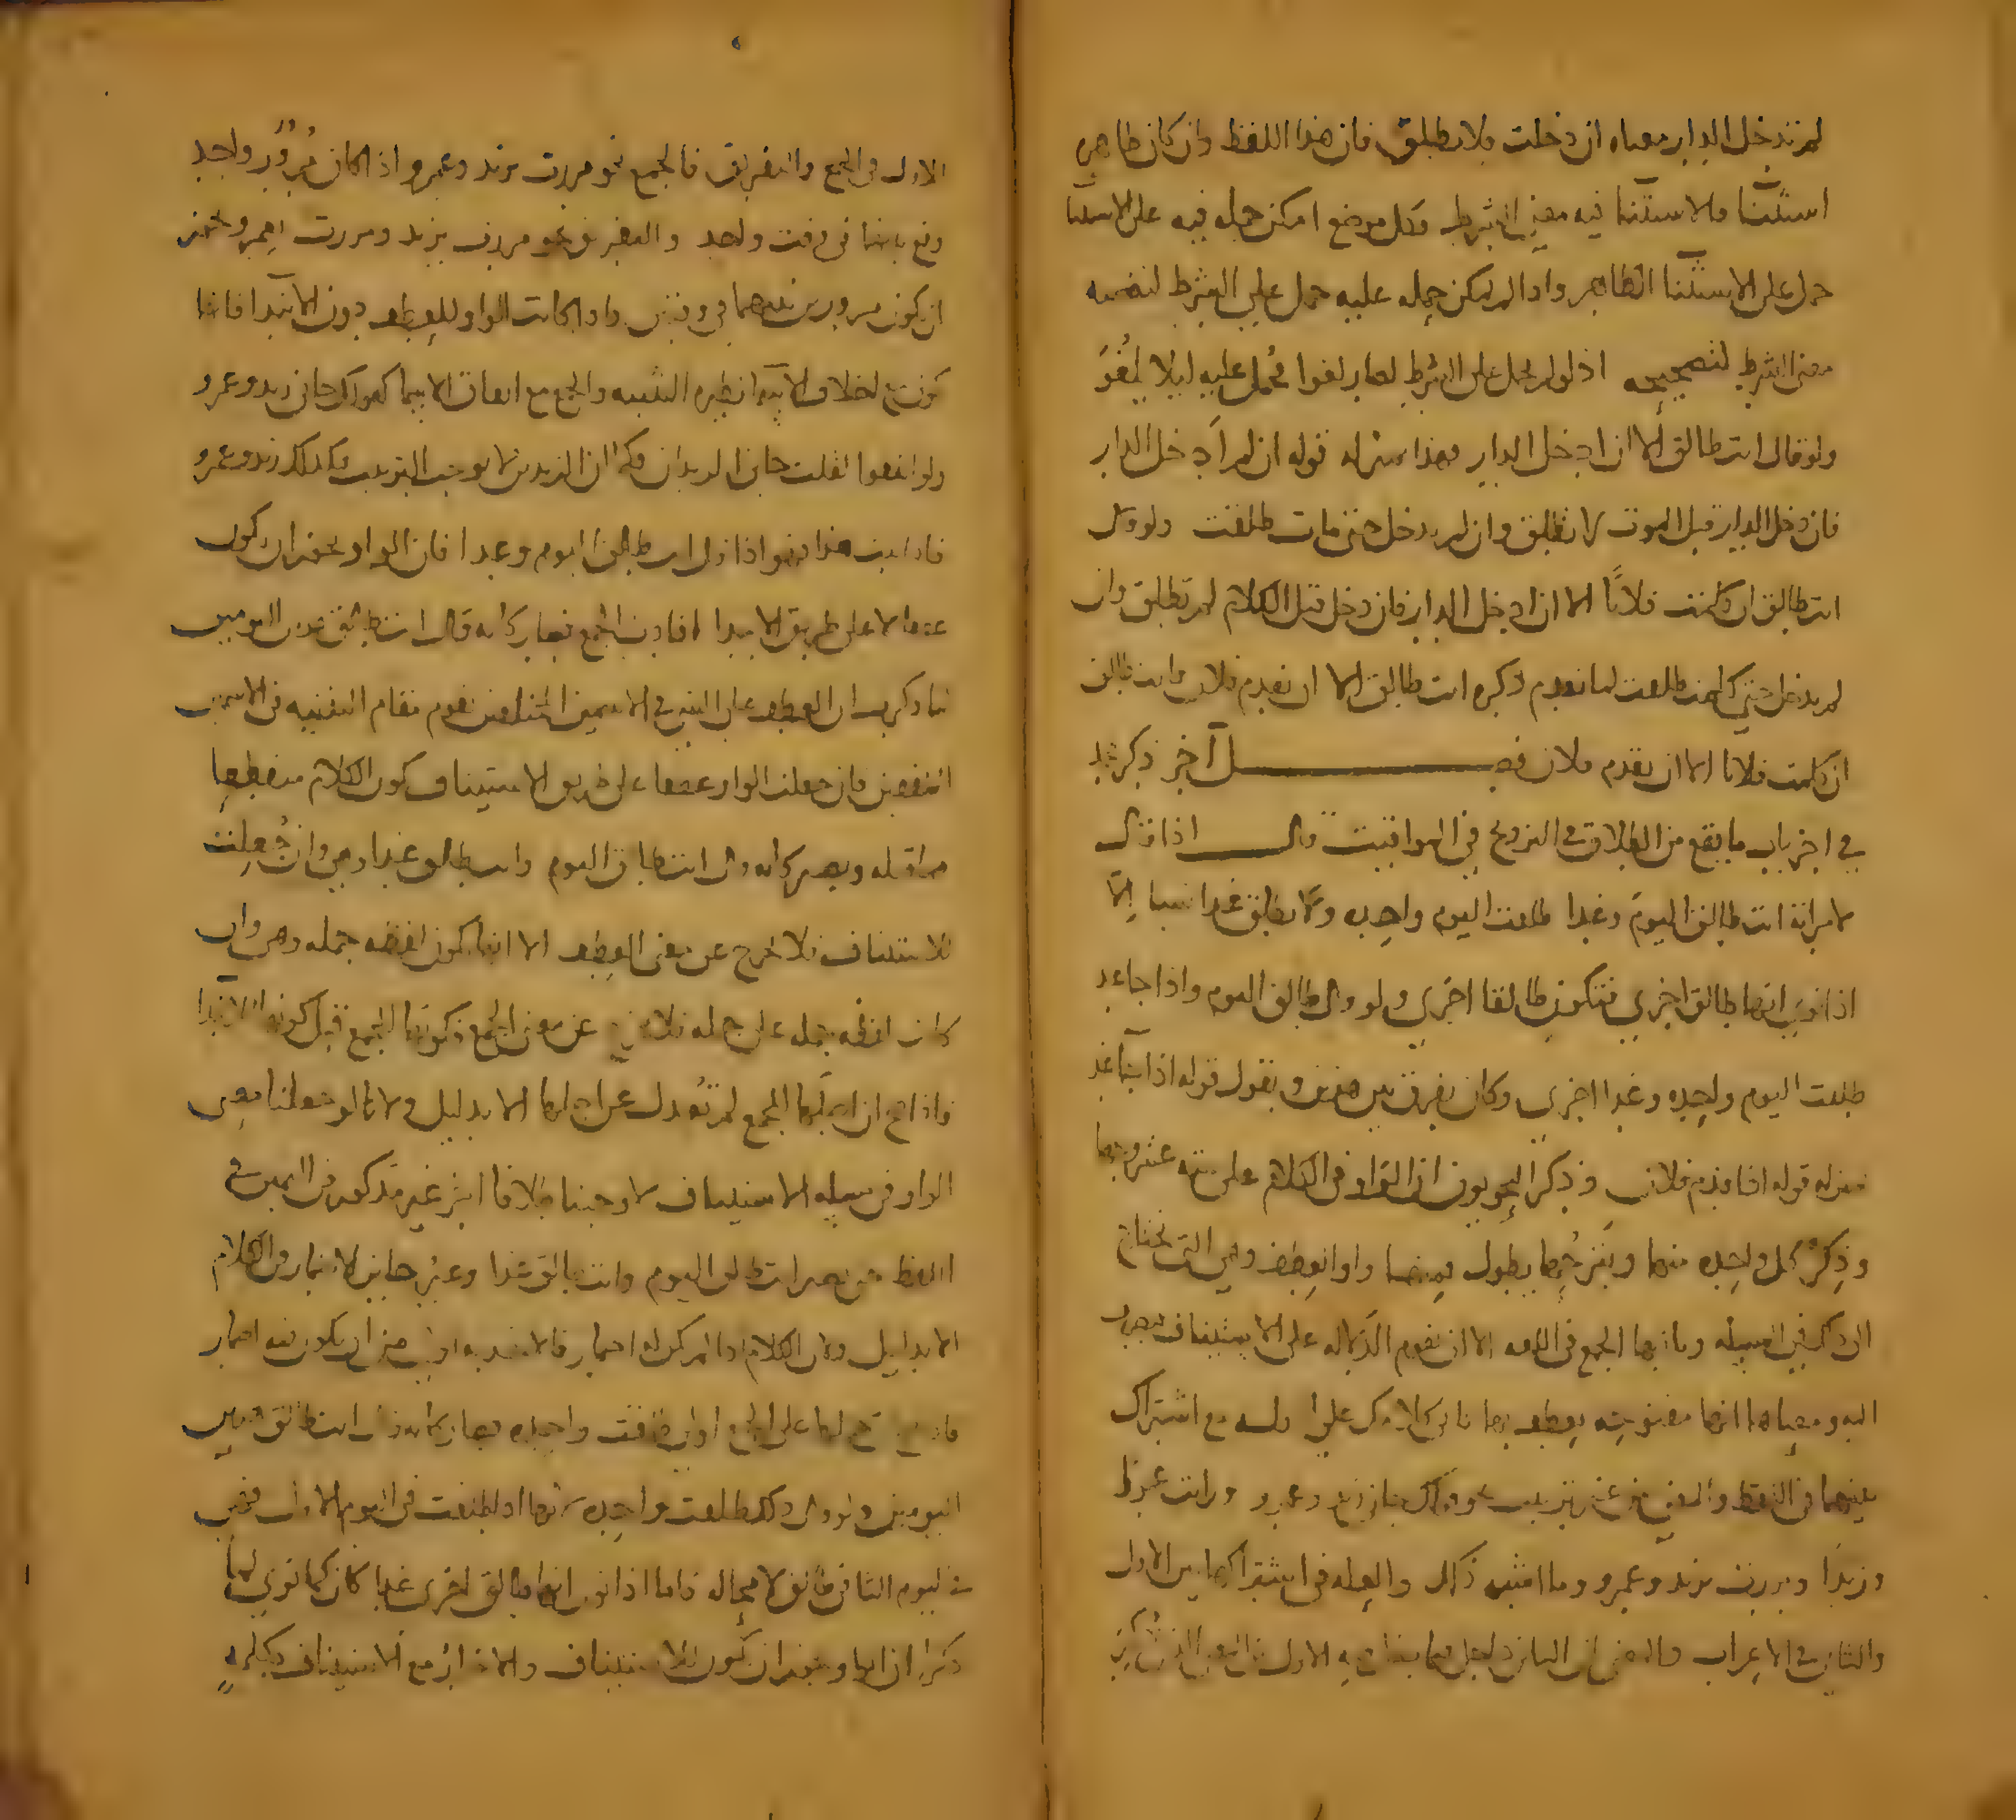 لم تدخل الدار معناه ان دخلت فلا تطلق فان هذا اللفظ وان كان ظاهره
استثنا والاستثنا فيه معنى الشرط وكل موضع امكن حمله فيه على الاستثنا
حمل على الاستثنا الظاهر واذا لم يمكن حمله عليه حمل على الشرط لتضمنه
معنى الشرط لتصحيحه اذ لو لم يحمل على الشرط لصار لغوا فحمل عليه ليلا يلغو
ولو قال انت طالق الا ان ادخل الدار فهذا بمنزلة قوله ان لم ادخل الدار
فان دخل الدار قبل الموت لا تطلق وان لم يدخل حتى مات طلقت ولو قال
انت طالق ان كلمت فلانا الا ان ادخل الدار فان دخل قبل الكلام لم تطلق وان
لم يدخل حتى كلمت طلقت لما تقدم ذكره انت طالق الا ان يقدم فلان وانت طالق
ان كلمت فلانا الا ان يقدم فلان فصل آخر ذكر
في اخر باب ما يقع من الطلاق في التزويج في المواقيت قال اذا قال
لامراته انت طالق اليوم وغدا طلقت اليوم واحده ولا تطلق غدا شيا الا
اذا نوى انها طالق اخرى فتكون طالقا اخرى ولو قال طالق اليوم واذا جا غد
طلقت اليوم واحده وغدا اخرى وكان يفرق بين هذين ويقول قوله اذا جا غد
بمنزلة قوله اذا قدم فلان وذكر النحويون ان الواو في الكلام على ستة عشر وجها
وذكر كل واحده منها وشرحها يطول فمنها واو العطف وهي التي نحتاج
الى ذكر في المسيله وبابها الجمع في اللغه الا ان تقوم الدلاله على الاستيناف
ومعناها انها مفتوحه يعطف بها مع اشتراك
بينهما في اللفظ والمعنى من غير ترتيب نحو قولك جاني زيد وعمرو ورايت عمرا
وزيدا ومررت بزيد وعمرو وما اشبه ذلك والعله في اشتراكها بين الاول
والثاني في الاعراب والمعنى ان الثاني دخل فيما دخل فيه الاول
الاول في الجمع والتفريق فالجمع نحو مررت بزيد وعمرو اذا كان مرور واحد
وقع بهما في وقت واحد والتفريق نحو مررت بزيد ومررت بعمرو
ان يكون مرورين بهما في وقتين واذا كانت الواو للعطف دون الابتدا فانها
تكون مع اختلاف الاسما نظيره التثنيه والجمع مع اتفاق الاسما كقولك جاني زيد وعمرو
ولو اتفقوا لقلت جاني الزيدان فكما ان الزيدين لا يوجب الترتيب فكذلك زيد وعمرو
فاذا ثبت هذا فهو اذا قال انت طالق اليوم وغدا فان الواو
عندنا لا على طريق الابتدا افادت الجمع فصار كانه قال انت طالق هذين اليومين
لما ذكرنا ان العطف على الشي في الاسمين المختلفين يقوم مقام التثنيه في الاسمين
المتفقين فان جعلت الواو على طريق الاستيناف كون الكلام منقطعا
مما قبله ويصير كانه قال انت طالق اليوم وانت طالق غدا وهي وان جعلت
للاستيناف فلا تخرج عن معنى العطف الا انها تكون لعطف جمله وهي وان
كانت لعطف جمله على جمله فلا تخرج عن معنى الجمع
فاذا صح ان اصلها الجمع لم تعدل عن اصلها الا بدليل ولانا لو جعلنا معنى
الواو في مسيله الاستيناف لاوجبنا طلاقا اخر غير مذكور في اليمين في
اللفظ حتى يصير انت طالق اليوم وانت طالق غدا وغير جايز الاضمار في الكلام
الا بدليل ولان الكلام اذا لم يكن له اضمار فالاخذ به اولى من ان يكون فيه اضمار
حملها على الجمع اولى طلقت واحده فصار كانه قال انت طالق هذين
اليومين ولو قال ذلك طلقت واحده لانها اذا طلقت في اليوم الاول فهي
في اليوم الثاني طالق لا محاله فاما اذا نوى انها طالق اخرى غدا كان كما نوى لما
ذكرنا ان الواو يجوز ان تكون للاستيناف والاضمار مع الاستيناف